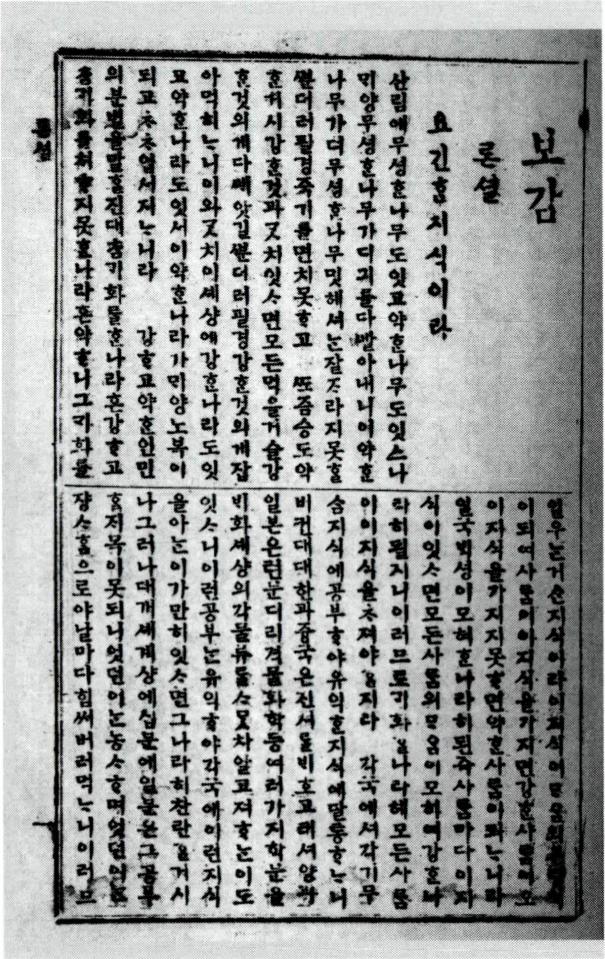 보감
론셜
요긴ᄒᆞᆫ지식이라
산림에무셩ᄒᆞᆫ나무도잇고약ᄒᆞᆫ나무도잇스나
ᄆᆡ양무셩ᄒᆞᆫ나무가디긔를다빨아내니어약ᄒᆞᆫ
나무가더무셩ᄒᆞᆫ나무밋헤셔ᄂᆞᆫ잘ᄌᆞ라지못ᄒᆞᆯ
ᄲᅮᆫ더러필경죽기를면치못ᄒᆞ고 ᄯᅩ즘승도약
ᄒᆞᆫ것의게다ᄲᅢ앗길ᄲᅮᆫ더러필경강ᄒᆞᆫ것의게잡
아먹히ᄂᆞ니이와ᄀᆞᆺ치이셰샹에강ᄒᆞᆫ나라도잇
고약ᄒᆞᆫ나라도잇서이약ᄒᆞᆫ나라가ᄆᆡ양노복이
되고ᄎᆞᄎᆞ업서지ᄂᆞ니라 강ᄒᆞ고약ᄒᆞᆫ인민
의분별을말ᄒᆞᆯ진대총긔화륜ᄒᆞᆫ나라흔강ᄒᆞ고
지못ᄒᆞᆫ나라흔약ᄒᆞ나그
업우ᄂᆞᆫ거슨지식이라이지식의
이되여사ᄅᆞᆷ이이지식을가지면강ᄒᆞᆫ사ᄅᆞᆷ
이지식을가지지못ᄒᆞ면약ᄒᆞᆫ사ᄅᆞᆷ이되ᄂᆞ니라
일국ᄇᆡᆨ셩이모혀ᄒᆞᆫ나라히된즉사ᄅᆞᆷ마다이지
식이잇스면모든사ᄅᆞᆷ의 모혀
라히될지니이러므로 나라헤모든사ᄅᆞᆷ
이이지식을ᄎᆞ져야 지라 각국에셔각기무
ᄉᆞᆷ지식에공부ᄒᆞ야유익ᄒᆞᆫ지식에달통ᄒᆞᄂᆞ니
비컨대대한과즁국은젼셔를ᄇᆡ호고태셔양과
일본은텬문디리격물화학등여러가지학문을
ᄇᆡ화셰샹의각물류들ᄭᆞ지알고져ᄒᆞᄂᆞᆫ이도
잇스니이런공부ᄂᆞᆫ유익ᄒᆞ야각국에이런지식
을아ᄂᆞᆫ이가만히잇스면그나라히찬란ᄒᆞᆯ거시
나그러나대개셰계샹에십분에일분은그공부
ᄒᆞᆯ제목이못되니엇던이ᄂᆞᆫ농ᄉᆞᄒᆞ며엇던이ᄂᆞᆫ
쟝ᄉᆞᄒᆞᆷ으로야날마다힘써버러먹ᄂᆞ니이러므
론셜